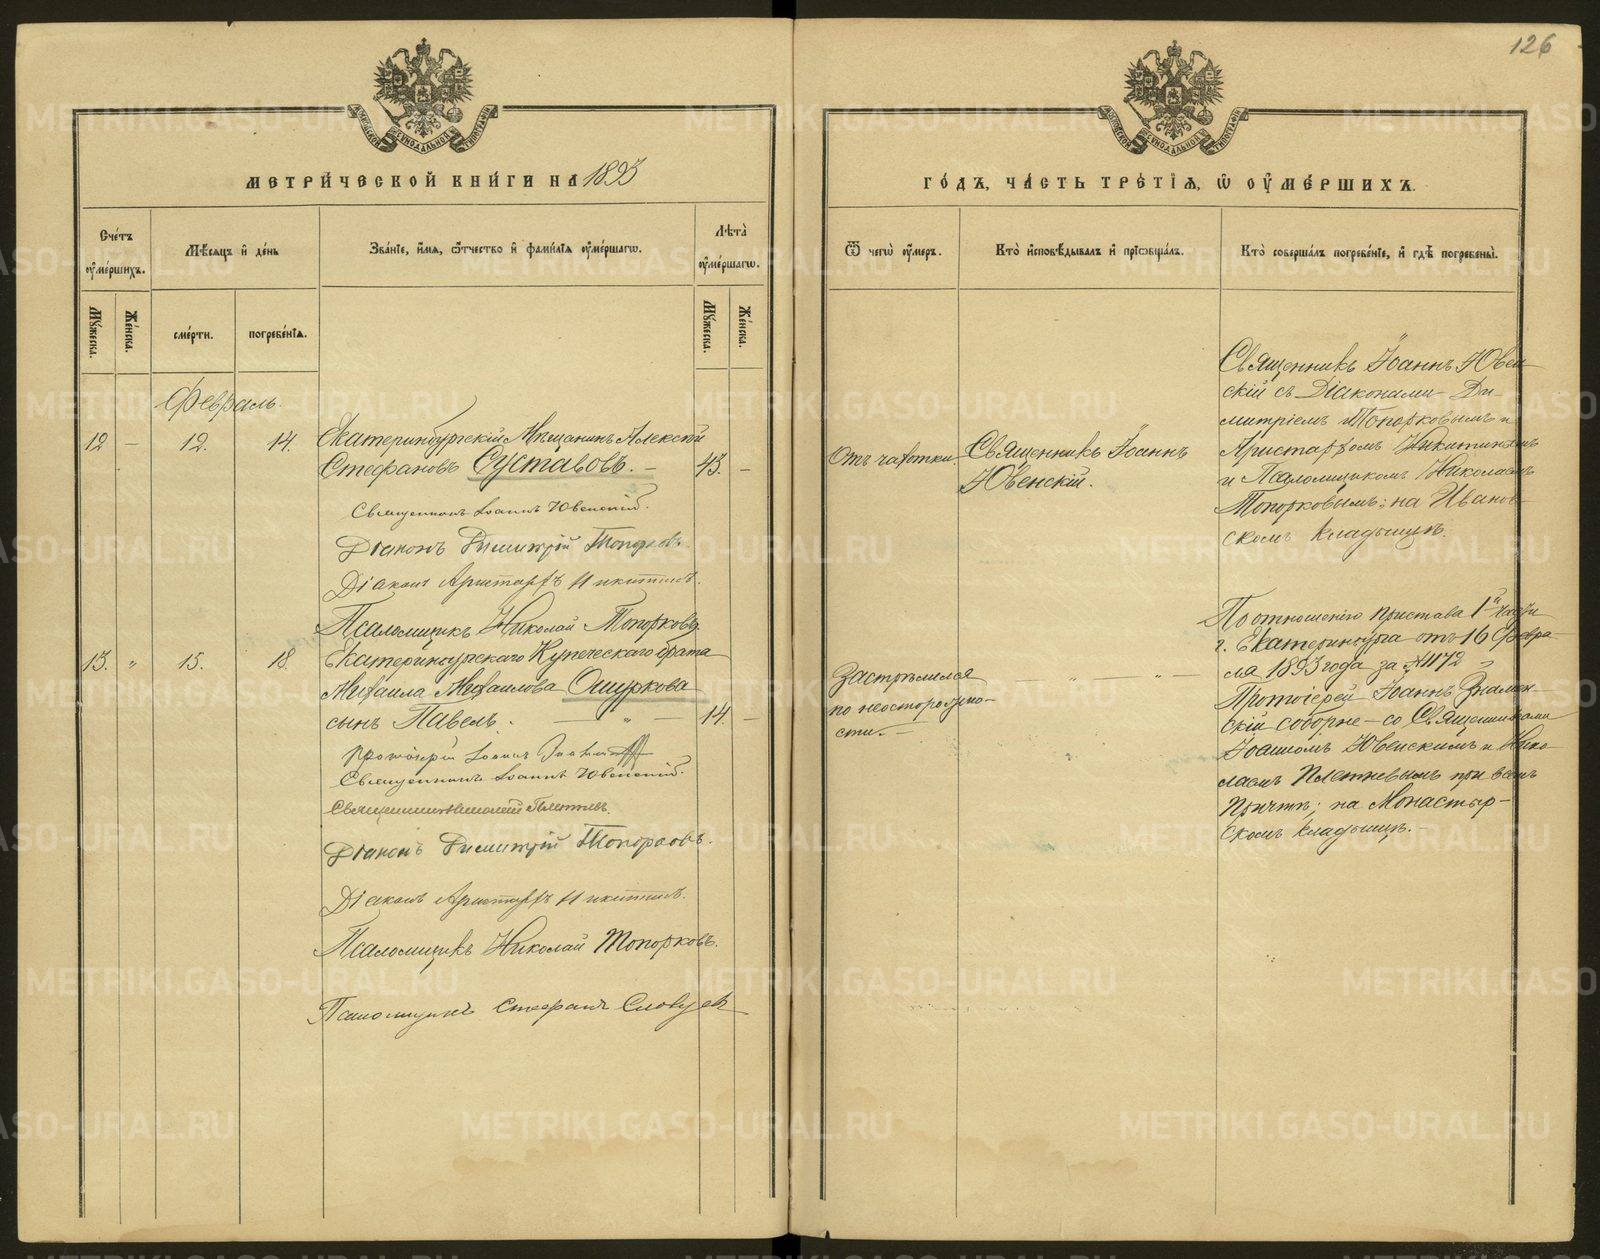 126
МЕТРИ́ЧЕСКОЙ КНИ́ГИ НА 1893
ГО́ДЪ, ЧА́СТЬ ТРЕ́ТІѦ, Ѡ҆ ОУ҆МЕ́РШИХЪ.
Сче́тъ оу҆ме́ршихъ.
Мѣ́сѧцъ и҆ де́нь
Зва́нїе, и҆́мѧ, ѻ҆́тчество и҆ фами́лїѧ оу҆ме́ршагѡ.
Лѣ́та оу҆ме́ршагѡ.
Ѿ чегѡ̀ оу҆́меръ.
Кто̀ и҆сповѣ́дывалъ и҆ прїѡбща́лъ.
Кто̀ соверша́лъ погребе́нїе, и҆ гдѣ̀ погребены̀.
Мꙋ́жеска.
Же́нска.
сме́рти.
погребе́нїѧ.
Мꙋ́жеска.
Же́нска.
Февраль.
12 — 12. 14.
Екатеринбургскій Мѣщанинъ Алексѣй
Стефановъ Суставовъ. — 43. —
Священникъ Іоаннъ Ювенскій.
Діаконъ Димитрій Топорковъ
Діаконъ Аристархъ Никитинъ.
Псаломщикъ Николай Топорковъ.
Отъ чахотки.
Священникъ Іоаннъ
Ювенскій.
Священникъ Іоаннъ Ювен
скій съ Діаконами Ди-
митріемъ Топорковымъ и
Аристархомъ Никитинымъ
и Псаломщикомъ Николаемъ
Топорковымъ; на Иванов-
скомъ кладбищѣ.
13. " 15. 18.
Екатеринбургскаго Купеческаго брата
Михаила Михаилова Ошуркова
сынъ Павелъ. — " — 14. —
Протоіерей Іоаннъ Знаменскій
Священникъ Іоаннъ Ювенскій.
Священникъ Николай Плетневъ.
Діаконъ Димитрій Топорковъ.
Діаконъ Аристархъ Никитинъ.
Псаломщикъ Николай Топорковъ.
Псаломщикъ Стефанъ Словцевъ
Застрѣлился
по неосторожно-
сти. —
— " — " —
По отношенію Пристава 1й части
г. Екатеринбурга отъ 16 Февра-
ля 1893 года за № 1172
Протоіерей Іоаннъ Знамен
скій соборне — со Священниками
Іоанномъ Ювенскимъ и Нико-
лаемъ Плетневымъ при всемъ
Причтѣ; на Монастыр-
скомъ кладбищѣ. —